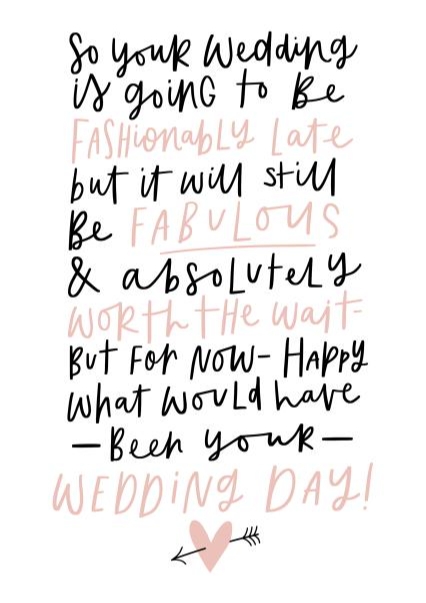 So your Wedding
is going to Be
FASHionabLy Late
but it will still
Be FABULOUS
& absoLutely
WORth tHe wait-
But For Now- HAppy
what would have
—Been your—
WEDDiNg DAY!